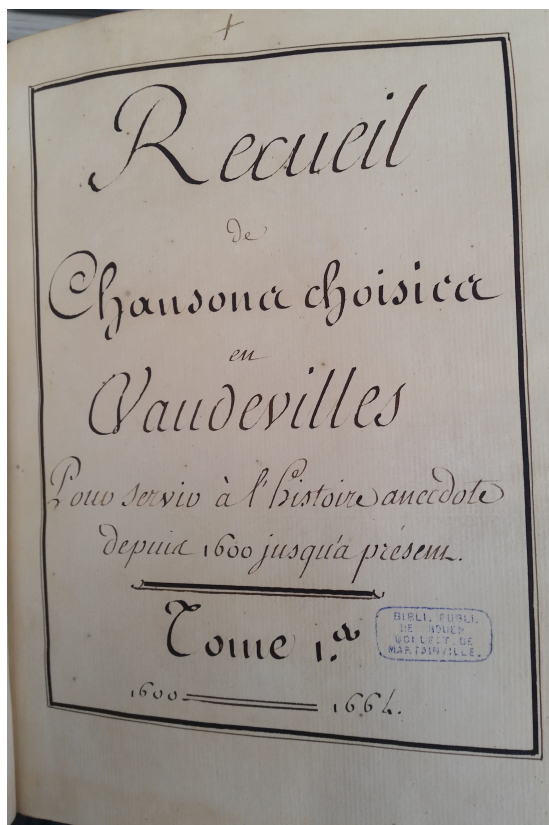 Recueil
de
Chansons choisies
en
Vaudevilles
Pour servir à l'histoire anecdote
depuis 1600 jusqu'à présent.
Tome 1.er
BIBLI. PUBLI.
DE ROUEN
COLLECT. DE
MARTAINVILLE.
1600 1664.